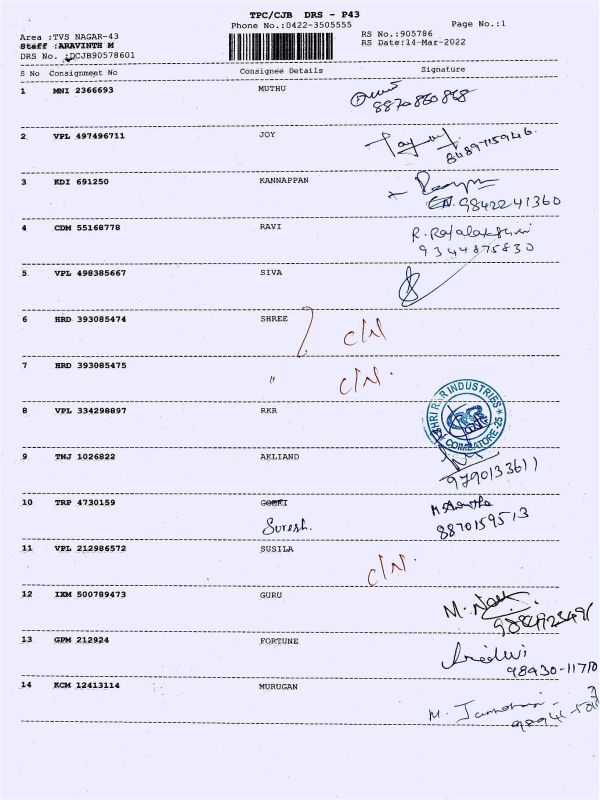 TPC/CJB DRS - P43
Phone No.:0422-3505555
Page No.:1
Area :TVS NAGAR-43
RS No.:905786
Staff :ARAVINTH M
RS Date:14-Mar-2022
DRS No. :DCJB90578601
S No Consignment No Consignee Details Signature
1 MNI 2366693 MUTHU
8870860868
2 VPL 497496711 JOY
8489715946.
3 KDI 691250 KANNAPPAN
9842241360
4 CDM 55168778 RAVI R. Rajalakshmi
9344875830
5 VPL 498385667 SIVA
6 HRD 393085474 SHREE C/N
7 HRD 393085475 " C/N.
8 VPL 334298897 RKR
SHRI RKR INDUSTRIES
COIMBATORE-25
9 TNJ 1026822 AKLIAND
9790133611
10 TRP 4730159
Suresh. 8870159513
11 VPL 212986572 SUSILA
C/N.
12 IXM 500789473 GURU M.
13 GPM 212924 FORTUNE
98430-11710
14 KCM 12413114 MURUGAN
M.